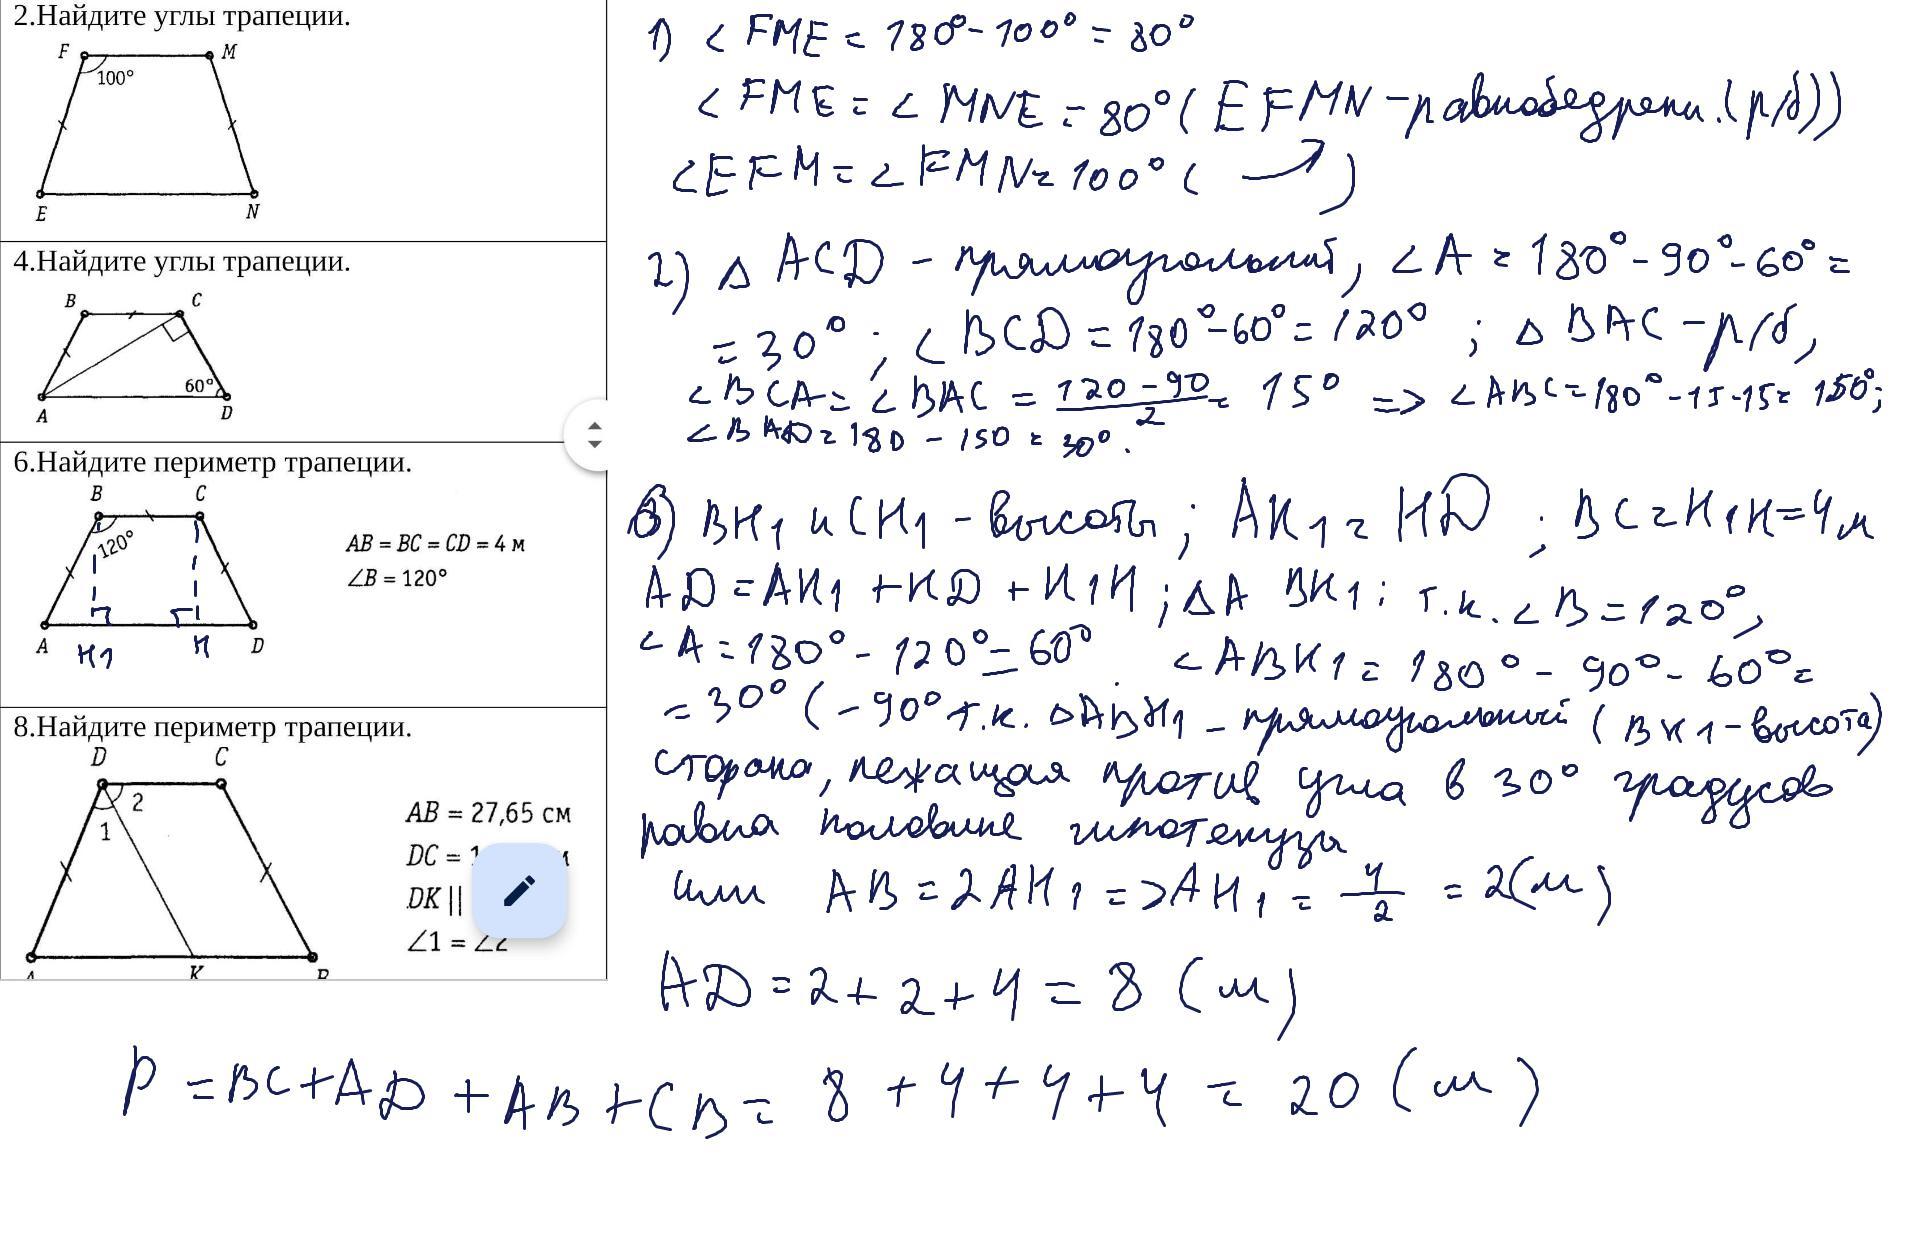 2.Найдите углы трапеции.
F
M
100°
E
N
4.Найдите углы трапеции.
B
C
60°
A
D
6.Найдите периметр трапеции.
B
C
120°
AB = BC = CD = 4 м
∠B = 120°
A
H1
H
D
8.Найдите периметр трапеции.
D
C
2
1
AB = 27,65 см
DC =
DK ||
∠1 = ∠2
K
1) ∠ FME = 180° - 100° = 80°
∠ FME = ∠ MNE = 80° ( EFMN - равнобедренн. (р/б))
∠EFM = ∠ FMN = 100° ( → )
2) △ ACD - прямоугольный, ∠ A = 180° - 90° - 60° =
= 30° ; ∠ BCD = 180° - 60° = 120° ; △ BAC - р/б,
∠ BCA = ∠ BAC = (120 - 90)/2 = 15° => ∠ ABC = 180° - 15 - 15 = 150°;
∠ BAD = 180 - 150 = 30°.
3) BH1 и CH1 - высоты ; AH1 = HD ; BC = H1H = 4 м
AD = AH1 + HD + H1H ; △ A BH1 : т.к. ∠ B = 120°,
∠ A = 180° - 120° = 60° ∠ ABH1 = 180° - 90° - 60° =
= 30° ( - 90° т.к. △ ABH1 - прямоугольный ( BH1 - высота)
сторона, лежащая против угла в 30° градусов
равна половине гипотенузы
или AB = 2AH1 => AH1 = 4/2 = 2(м)
AD = 2 + 2 + 4 = 8 (м)
P = BC + AD + AB + CB = 8 + 4 + 4 + 4 = 20 (м)